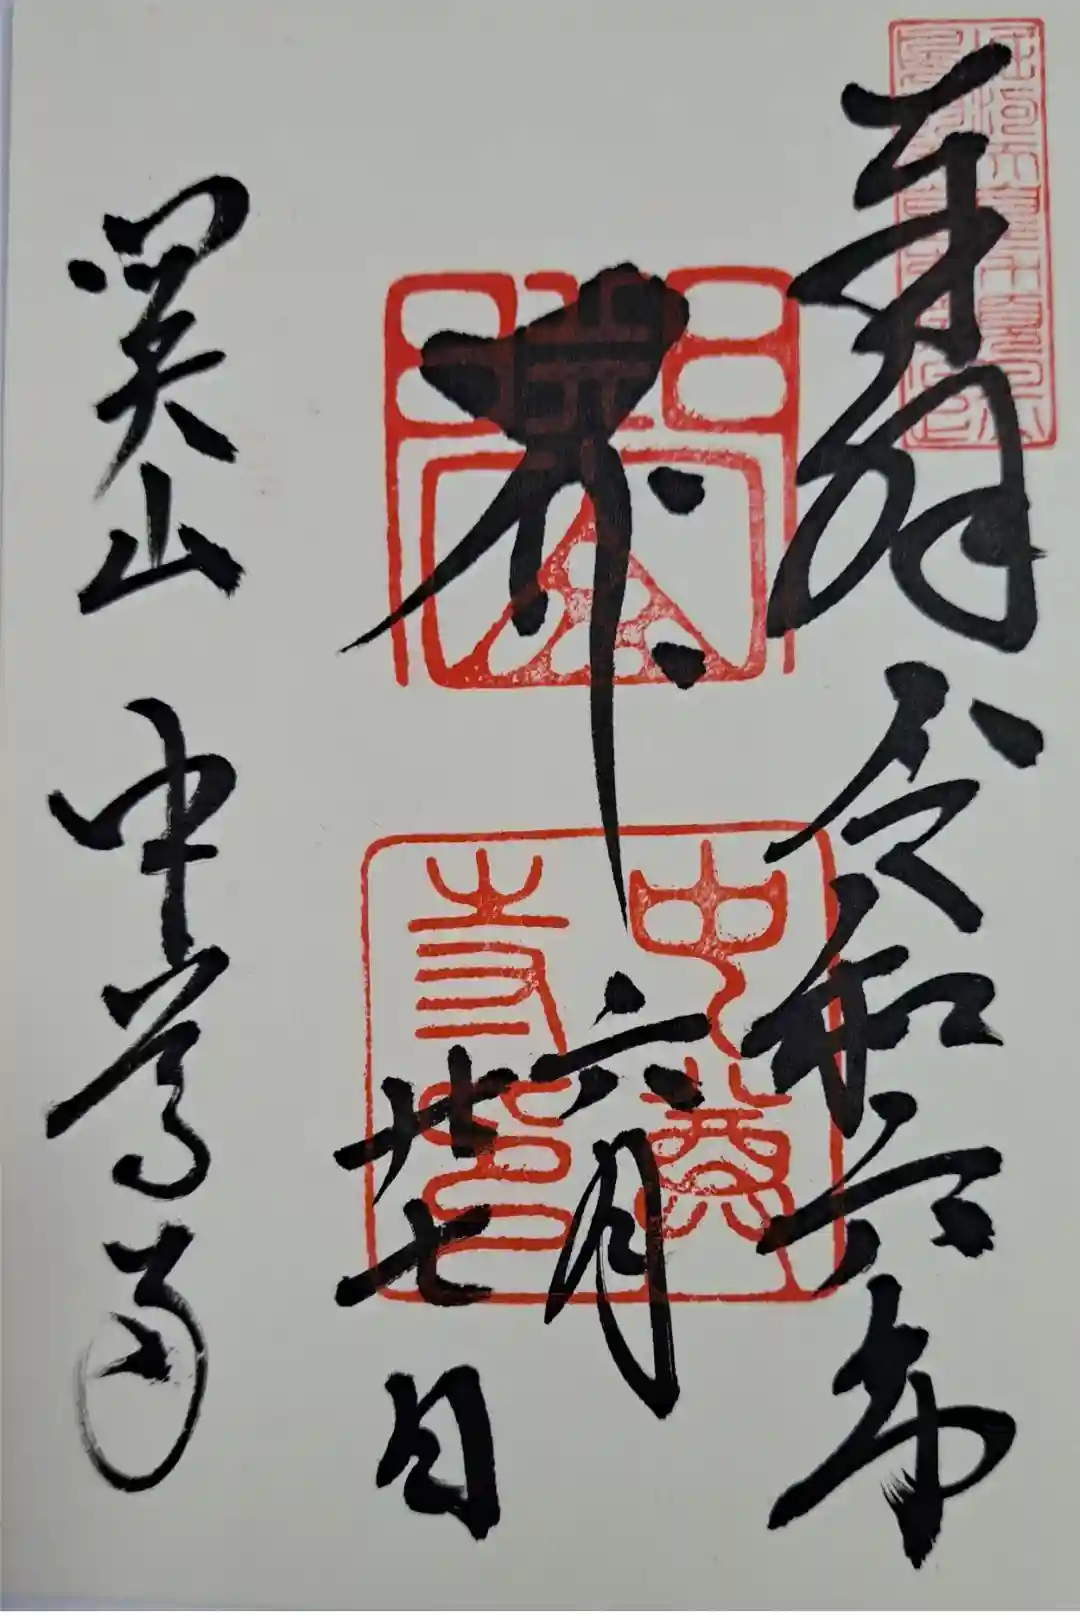 奉拝 令和六年
六月
廿七日
関山 中尊寺
中尊
寺印